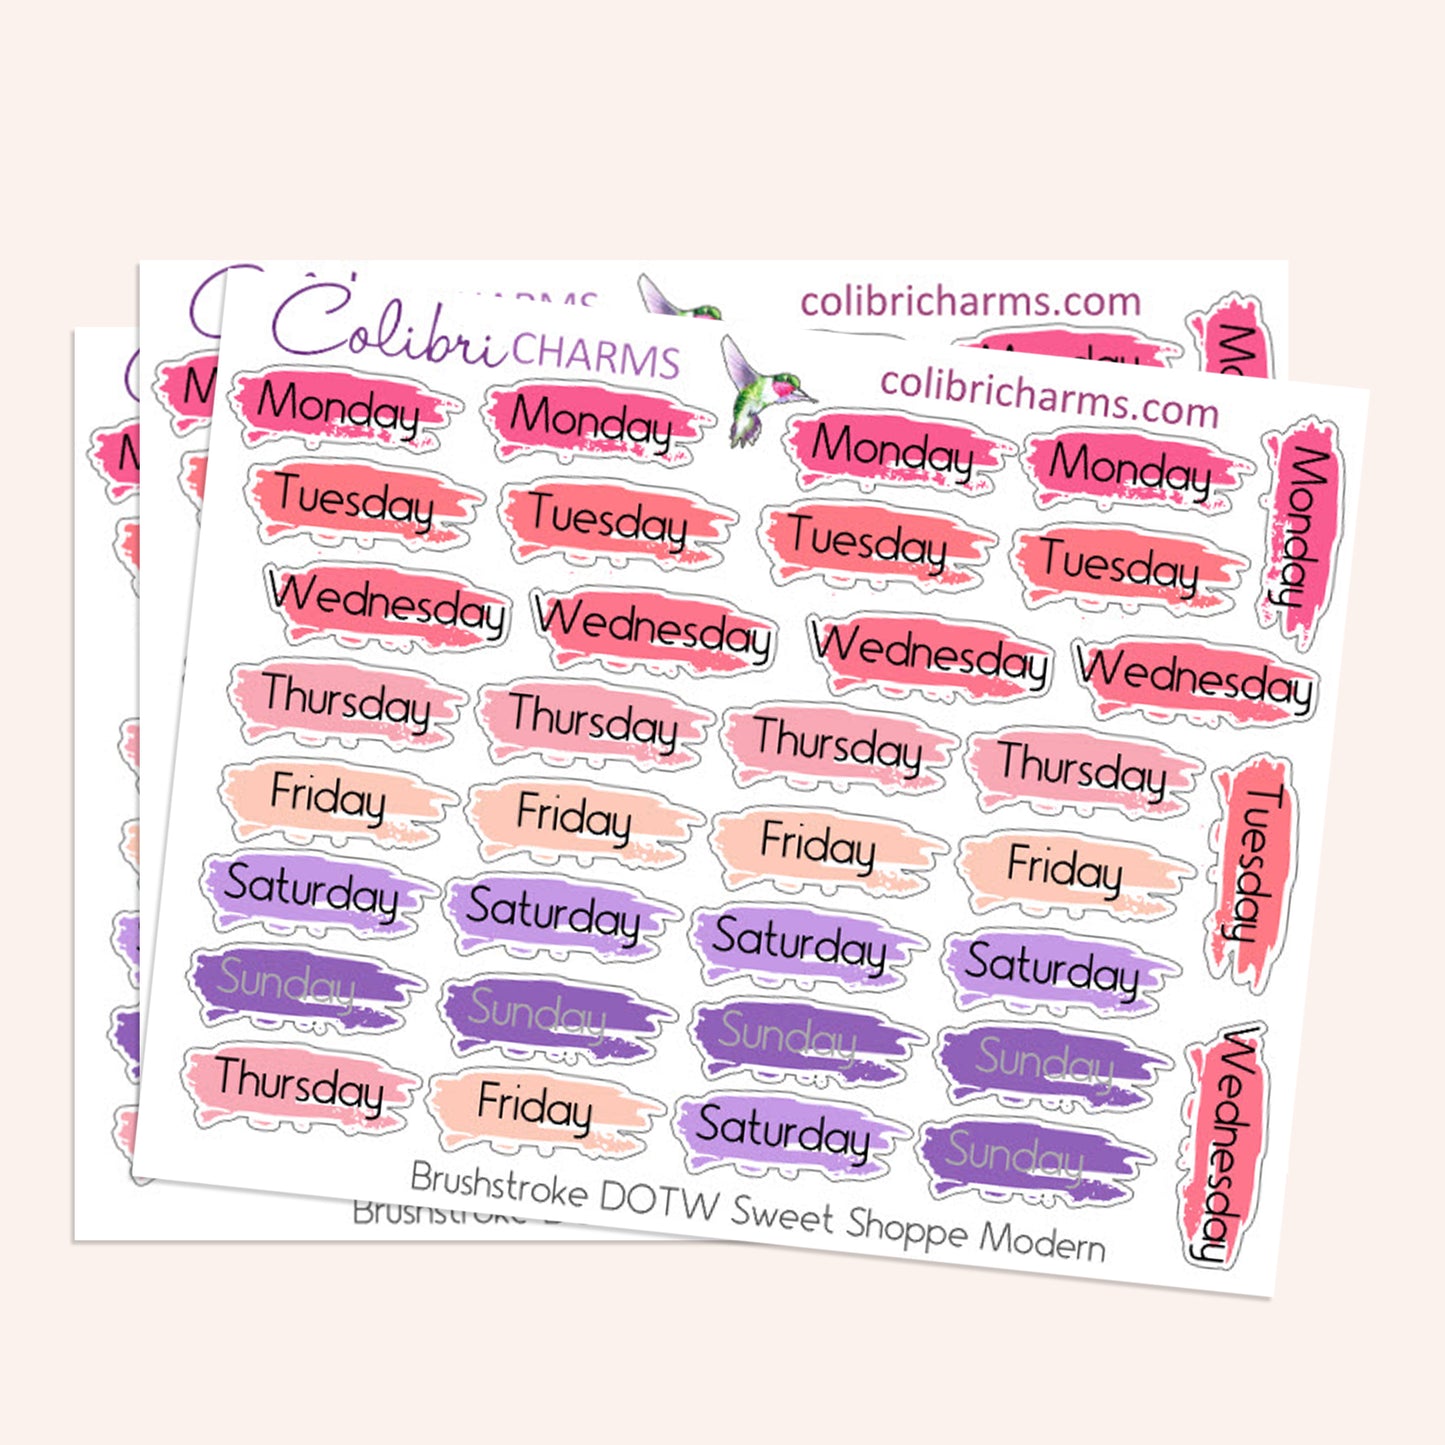 colibricharms.com
Colibri CHARMS
colibricharms.com
Monday Monday Monday Monday
Tuesday Tuesday Tuesday Tuesday
Wednesday Wednesday Wednesday Wednesday
Thursday Thursday Thursday Thursday
Friday Friday Friday Friday
Saturday Saturday Saturday Saturday
Sunday Sunday Sunday Sunday
Thursday Friday Saturday Sunday
Monday
Tuesday
Wednesday
Brushstroke DOTW Sweet Shoppe Modern